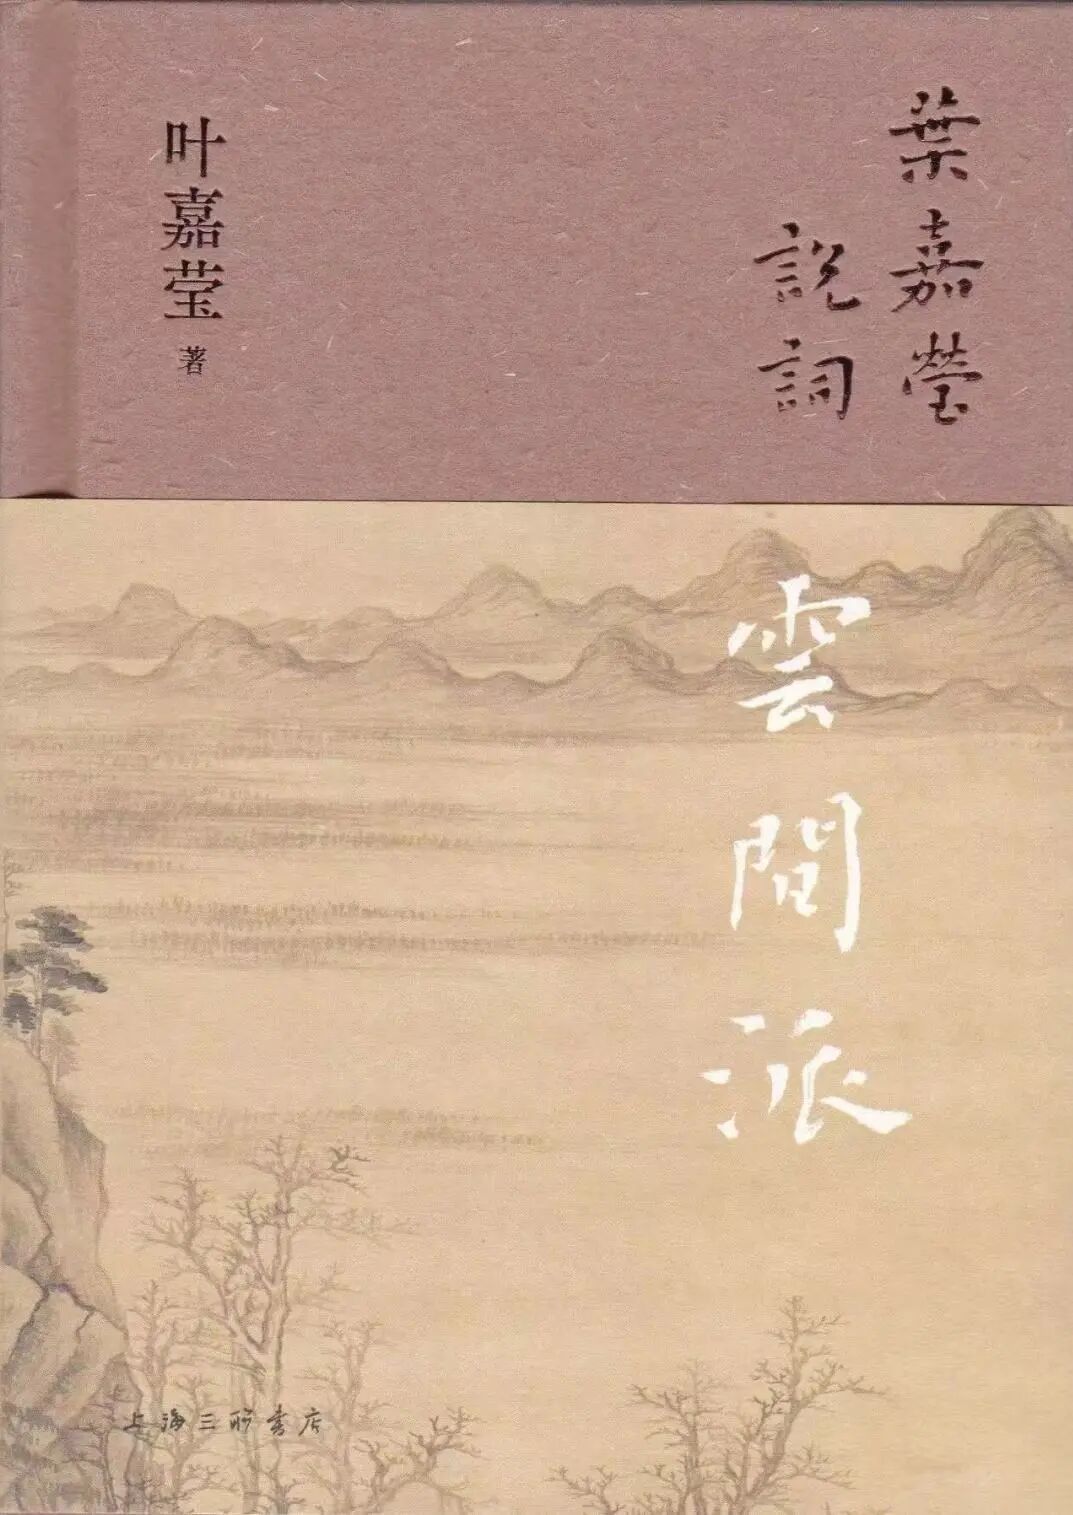 葉嘉瑩
説詞
叶嘉莹 著
雲間派
上海三联书店